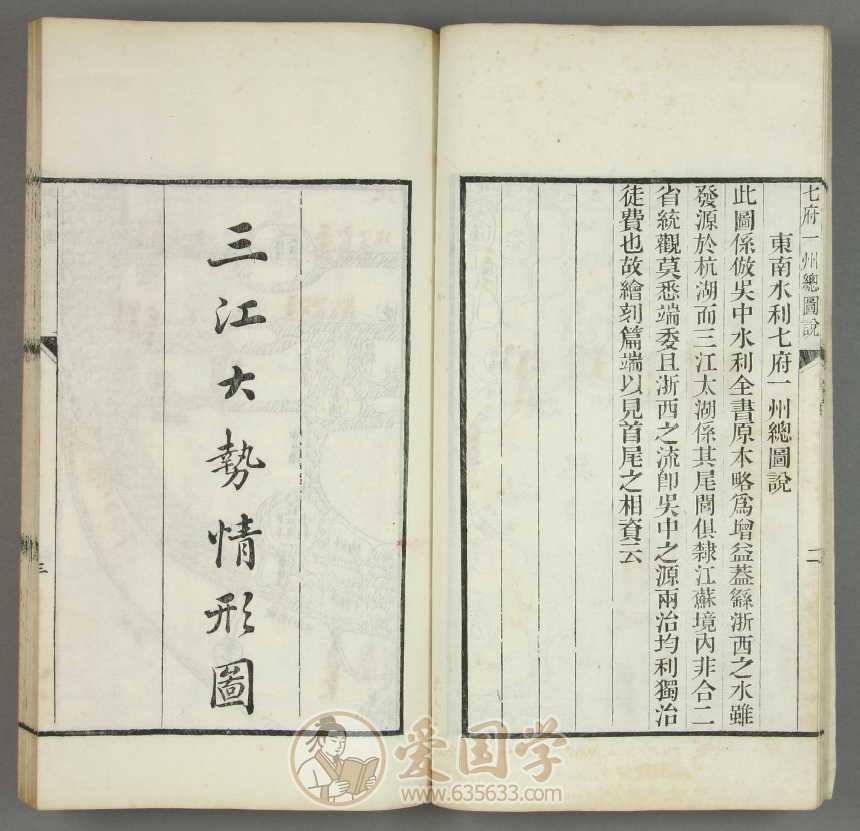 七府一州總圖說
二
東南水利七府一州總圖說
此圖係倣吳中水利全書原本略爲增益蓋緣浙西之水雖
發源於杭湖而三江太湖係其尾閭俱隸江蘇境內非合二
省統觀莫悉端委且浙西之流卽吳中之源兩治均利獨治
徒費也故繪刻篇端以見首尾之相資云
三江大勢情形圖
三
爱国学
www.635633.com